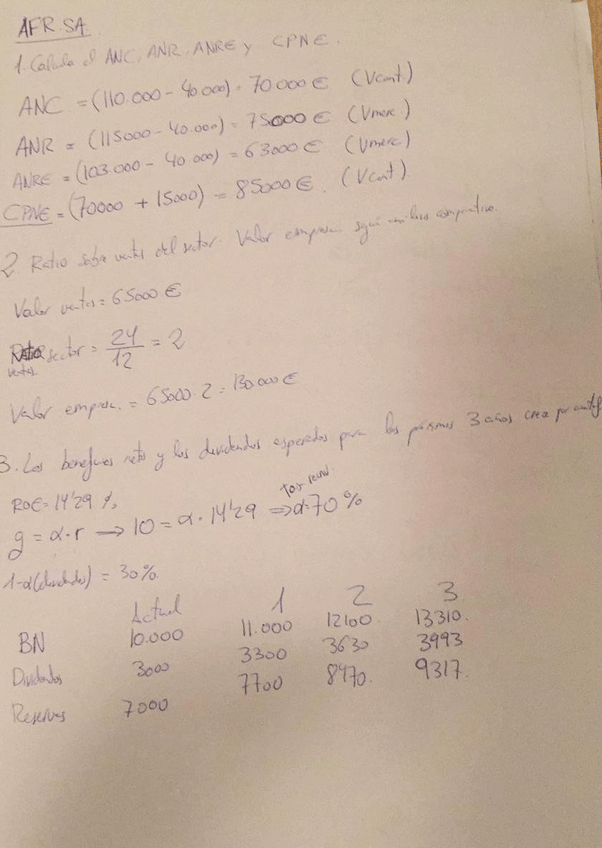 AFR.SA.
1. Calcula el ANC, ANR, ANRE y CPNE.
ANC = (110.000 - 40.000) = 70.000 € (Vcont.)
ANR = (115000 - 40.000) = 75000 € (Vmerc)
ANRE = (103.000 - 40.000) = 63000 € (Vmerc)
CPNE = (70000 + 15000) = 85000 €. (Vcont).
2 Ratio sobre ventas del sector. Valor empresa según comparativo.
Valor ventas = 65000 €
Ratio sector = 24/12 = 2
ventas
Valor empresa. = 65000 · 2 = 130.000 €
3. Los beneficios neto y los dividendos esperados para los próximos 3 años crece por
ROE = 14'29 %
g = α · r → 10 = α · 14'29 ⇒ α = 70 %
1-α (dividendos) = 30%
Actual 1 2 3
BN 10.000 11.000 12100. 13310.
Dividendos 3000 3300 3630 3993
Reservas 7000 7700 8470. 9317.